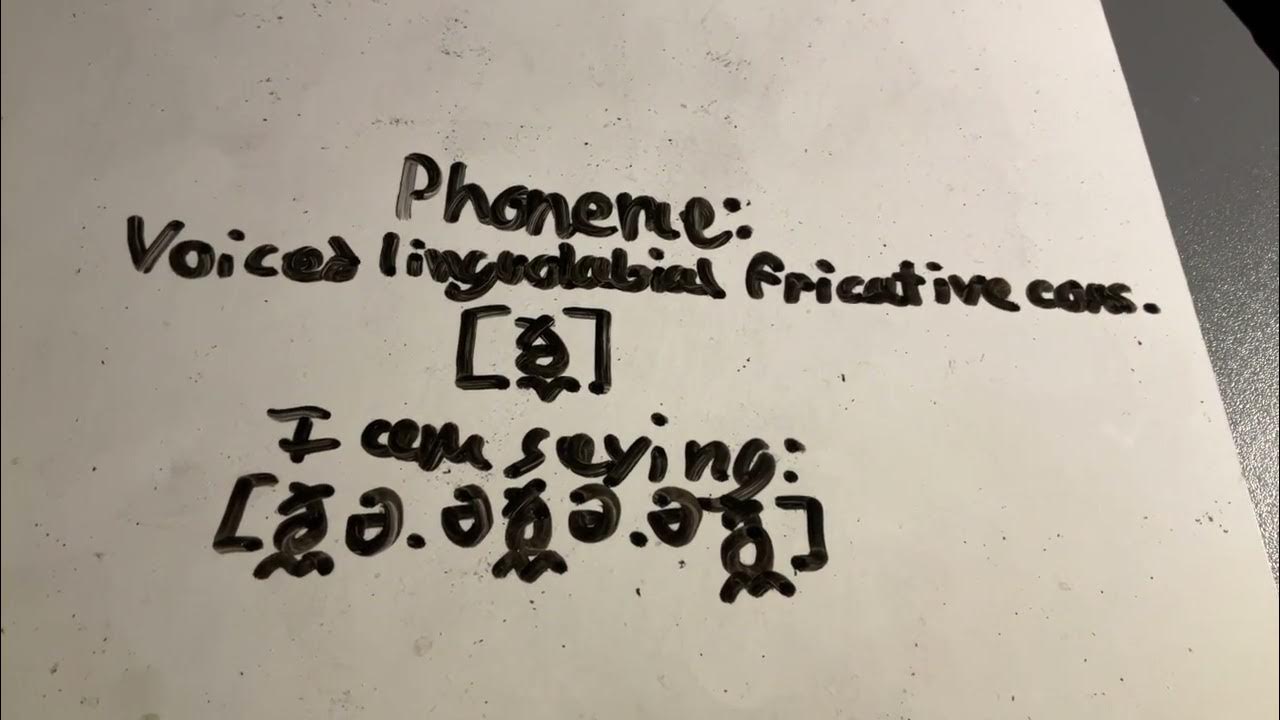 Phoneme:
Voiced lingualabial fricative cons.
[ð̼]
I am saying:
[ð̼ə.əð̼ə.əð̼]